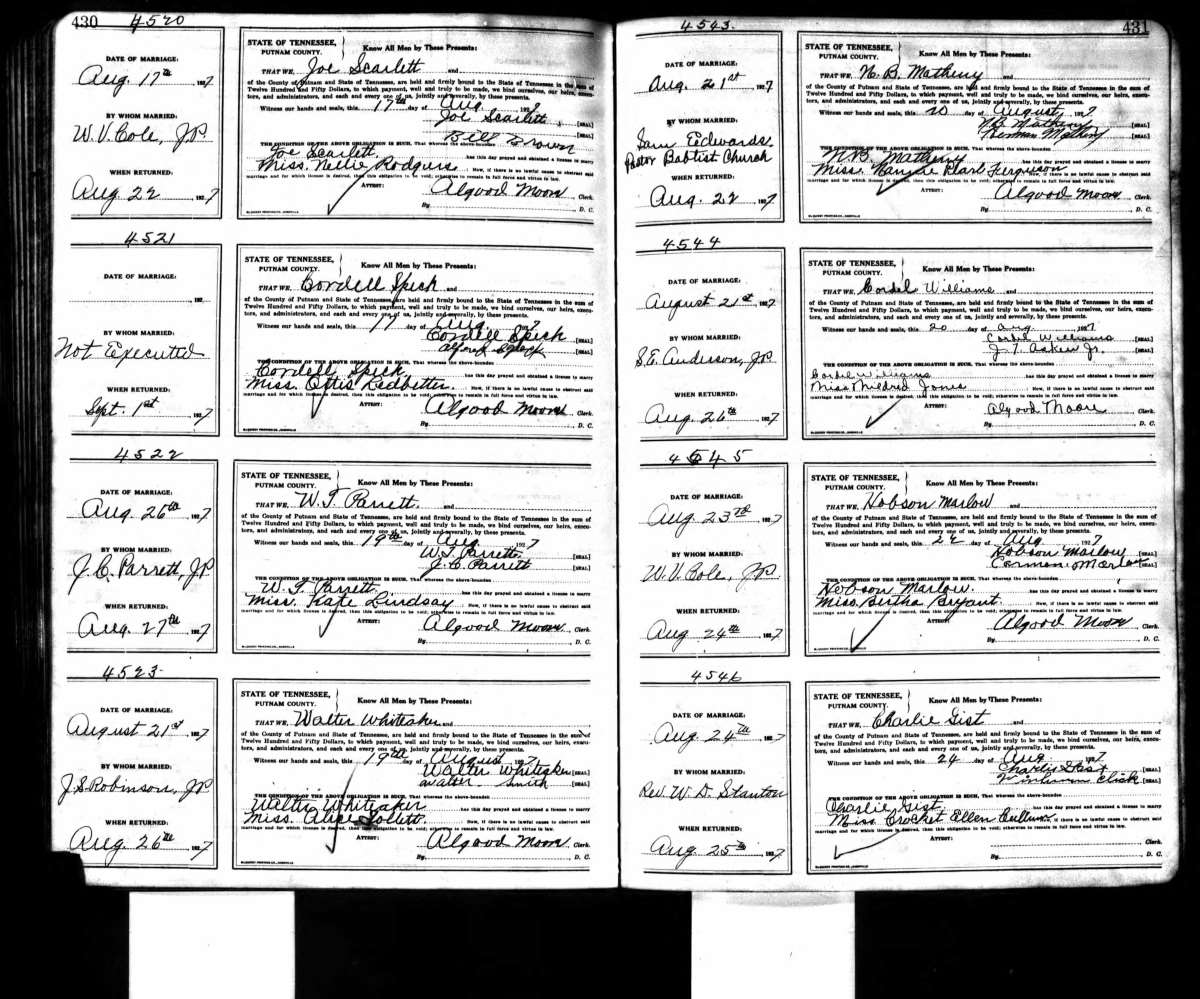 430
4520
DATE OF MARRIAGE:
Aug. 17th 1927
BY WHOM MARRIED:
W. V. Cole, JP
WHEN RETURNED:
Aug 22 1927
STATE OF TENNESSEE,
PUTNAM COUNTY.
Know All Men by These Presents:
THAT WE, Joe Scarlett and
of the County of Putnam and State of Tennessee, are held and firmly bound to the State of Tennessee in the sum of
Twelve Hundred and Fifty Dollars, to which payment, well and truly to be made, we bind ourselves, our heirs, execu-
tors, and administrators, and each and every one of us, jointly and severally, by these presents.
Witness our hands and seals, this 17th day of Aug 1927
Joe Scarlett [SEAL]
Bill Brown [SEAL]
THE CONDITION OF THE ABOVE OBLIGATION IS SUCH, That whereas the above-bounden
Joe Scarlett has this day prayed and obtained a license to marry
Miss. Nellie Rodgers. Now, if there is no lawful cause to obstruct said
marriage and for which license is desired, then this obligation to be void; otherwise to remain in full force and virtue in law.
ATTEST: Algood Moore Clerk.
By D. C.
4521
DATE OF MARRIAGE:
192
BY WHOM MARRIED:
Not Executed
WHEN RETURNED:
Sept. 1st 1927
STATE OF TENNESSEE,
PUTNAM COUNTY.
Know All Men by These Presents:
THAT WE, Cordell Speck and
of the County of Putnam and State of Tennessee, are held and firmly bound to the State of Tennessee in the sum of
Twelve Hundred and Fifty Dollars, to which payment, well and truly to be made, we bind ourselves, our heirs, execu-
tors, and administrators, and each and every one of us, jointly and severally, by these presents.
Witness our hands and seals, this 17 day of Aug. 1927
Cordell Speck [SEAL]
Alfred Speck [SEAL]
THE CONDITION OF THE ABOVE OBLIGATION IS SUCH, That whereas the above-bounden
Cordell Speck has this day prayed and obtained a license to marry
Miss. Ottis Ledbetter. Now, if there is no lawful cause to obstruct said
marriage and for which license is desired, then this obligation to be void; otherwise to remain in full force and virtue in law.
ATTEST: Algood Moore Clerk.
By D. C.
4522
DATE OF MARRIAGE:
Aug. 26th 1927
BY WHOM MARRIED:
J. C. Parrett, JP
WHEN RETURNED:
Aug. 27th 1927
STATE OF TENNESSEE,
PUTNAM COUNTY.
Know All Men by These Presents:
THAT WE, W. T. Parrett and
of the County of Putnam and State of Tennessee, are held and firmly bound to the State of Tennessee in the sum of
Twelve Hundred and Fifty Dollars, to which payment, well and truly to be made, we bind ourselves, our heirs, execu-
tors, and administrators, and each and every one of us, jointly and severally, by these presents.
Witness our hands and seals, this 19th day of Aug. 1927
W. T. Parrett [SEAL]
J. C. Parrett [SEAL]
THE CONDITION OF THE ABOVE OBLIGATION IS SUCH, That whereas the above-bounden
W. T. Parrett has this day prayed and obtained a license to marry
Miss. Kate Lindsay. Now, if there is no lawful cause to obstruct said
marriage and for which license is desired, then this obligation to be void; otherwise to remain in full force and virtue in law.
ATTEST: Algood Moore Clerk.
By D. C.
4523
DATE OF MARRIAGE:
August 21st 1927
BY WHOM MARRIED:
J. S. Robinson, JP
WHEN RETURNED:
Aug 26th 1927
STATE OF TENNESSEE,
PUTNAM COUNTY.
Know All Men by These Presents:
THAT WE, Walter Whiteaker and
of the County of Putnam and State of Tennessee, are held and firmly bound to the State of Tennessee in the sum of
Twelve Hundred and Fifty Dollars, to which payment, well and truly to be made, we bind ourselves, our heirs, execu-
tors, and administrators, and each and every one of us, jointly and severally, by these presents.
Witness our hands and seals, this 19th day of August 1927
Walter Whiteaker [SEAL]
Walter Smith [SEAL]
THE CONDITION OF THE ABOVE OBLIGATION IS SUCH, That whereas the above-bounden
Walter Whiteaker has this day prayed and obtained a license to marry
Miss. Alice Lollett. Now, if there is no lawful cause to obstruct said
marriage and for which license is desired, then this obligation to be void; otherwise to remain in full force and virtue in law.
ATTEST: Algood Moore Clerk.
By D. C.
431
4543
DATE OF MARRIAGE:
Aug. 21st 1927
BY WHOM MARRIED:
Sam Edwards
Pastor Baptist Church
WHEN RETURNED:
Aug. 22 1927
STATE OF TENNESSEE,
PUTNAM COUNTY.
Know All Men by These Presents:
THAT WE, N. B. Matheny and
of the County of Putnam and State of Tennessee, are held and firmly bound to the State of Tennessee in the sum of
Twelve Hundred and Fifty Dollars, to which payment, well and truly to be made, we bind ourselves, our heirs, execu-
tors, and administrators, and each and every one of us, jointly and severally, by these presents.
Witness our hands and seals, this 20 day of August 1927
N B Matheny [SEAL]
Herman Matheny [SEAL]
THE CONDITION OF THE ABOVE OBLIGATION IS SUCH, That whereas the above-bounden
N. B. Matheny has this day prayed and obtained a license to marry
Miss. Nannie Pearl Ferguson. Now, if there is no lawful cause to obstruct said
marriage and for which license is desired, then this obligation to be void; otherwise to remain in full force and virtue in law.
ATTEST: Algood Moore Clerk.
By D. C.
4544
DATE OF MARRIAGE:
August 21st 1927
BY WHOM MARRIED:
S. E. Anderson, JP
WHEN RETURNED:
Aug. 26th 1927
STATE OF TENNESSEE,
PUTNAM COUNTY.
Know All Men by These Presents:
THAT WE, Cordel Williams and
of the County of Putnam and State of Tennessee, are held and firmly bound to the State of Tennessee in the sum of
Twelve Hundred and Fifty Dollars, to which payment, well and truly to be made, we bind ourselves, our heirs, execu-
tors, and administrators, and each and every one of us, jointly and severally, by these presents.
Witness our hands and seals, this 20 day of Aug. 1927
Cordel Williams [SEAL]
J. T. Askew Jr. [SEAL]
THE CONDITION OF THE ABOVE OBLIGATION IS SUCH, That whereas the above-bounden
Cordel Williams has this day prayed and obtained a license to marry
Miss Mildred Jones. Now, if there is no lawful cause to obstruct said
marriage and for which license is desired, then this obligation to be void; otherwise to remain in full force and virtue in law.
ATTEST: Algood Moore Clerk.
By D. C.
4545
DATE OF MARRIAGE:
Aug 23rd 1927
BY WHOM MARRIED:
W. V. Cole, JP
WHEN RETURNED:
Aug 24th 1927
STATE OF TENNESSEE,
PUTNAM COUNTY.
Know All Men by These Presents:
THAT WE, Hobson Marlow and
of the County of Putnam and State of Tennessee, are held and firmly bound to the State of Tennessee in the sum of
Twelve Hundred and Fifty Dollars, to which payment, well and truly to be made, we bind ourselves, our heirs, execu-
tors, and administrators, and each and every one of us, jointly and severally, by these presents.
Witness our hands and seals, this 22 day of Aug 1927
Hobson Marlow [SEAL]
Carmon Marlow [SEAL]
THE CONDITION OF THE ABOVE OBLIGATION IS SUCH, That whereas the above-bounden
Hobson Marlow. has this day prayed and obtained a license to marry
Miss. Birtha Bryant. Now, if there is no lawful cause to obstruct said
marriage and for which license is desired, then this obligation to be void; otherwise to remain in full force and virtue in law.
ATTEST: Algood Moore Clerk.
By D. C.
4546
DATE OF MARRIAGE:
Aug 24th 1927
BY WHOM MARRIED:
Rev. W. D. Stanton
WHEN RETURNED:
Aug. 25th 1927
STATE OF TENNESSEE,
PUTNAM COUNTY.
Know All Men by These Presents:
THAT WE, Charlie Gist and
of the County of Putnam and State of Tennessee, are held and firmly bound to the State of Tennessee in the sum of
Twelve Hundred and Fifty Dollars, to which payment, well and truly to be made, we bind ourselves, our heirs, execu-
tors, and administrators, and each and every one of us, jointly and severally, by these presents.
Witness our hands and seals, this 24 day of Aug 1927
Charlie Gist [SEAL]
Click [SEAL]
THE CONDITION OF THE ABOVE OBLIGATION IS SUCH, That whereas the above-bounden
Charlie Gist. has this day prayed and obtained a license to marry
Miss Crocket Ellen. Now, if there is no lawful cause to obstruct said
marriage and for which license is desired, then this obligation to be void; otherwise to remain in full force and virtue in law.
ATTEST: Clerk.
By D. C.